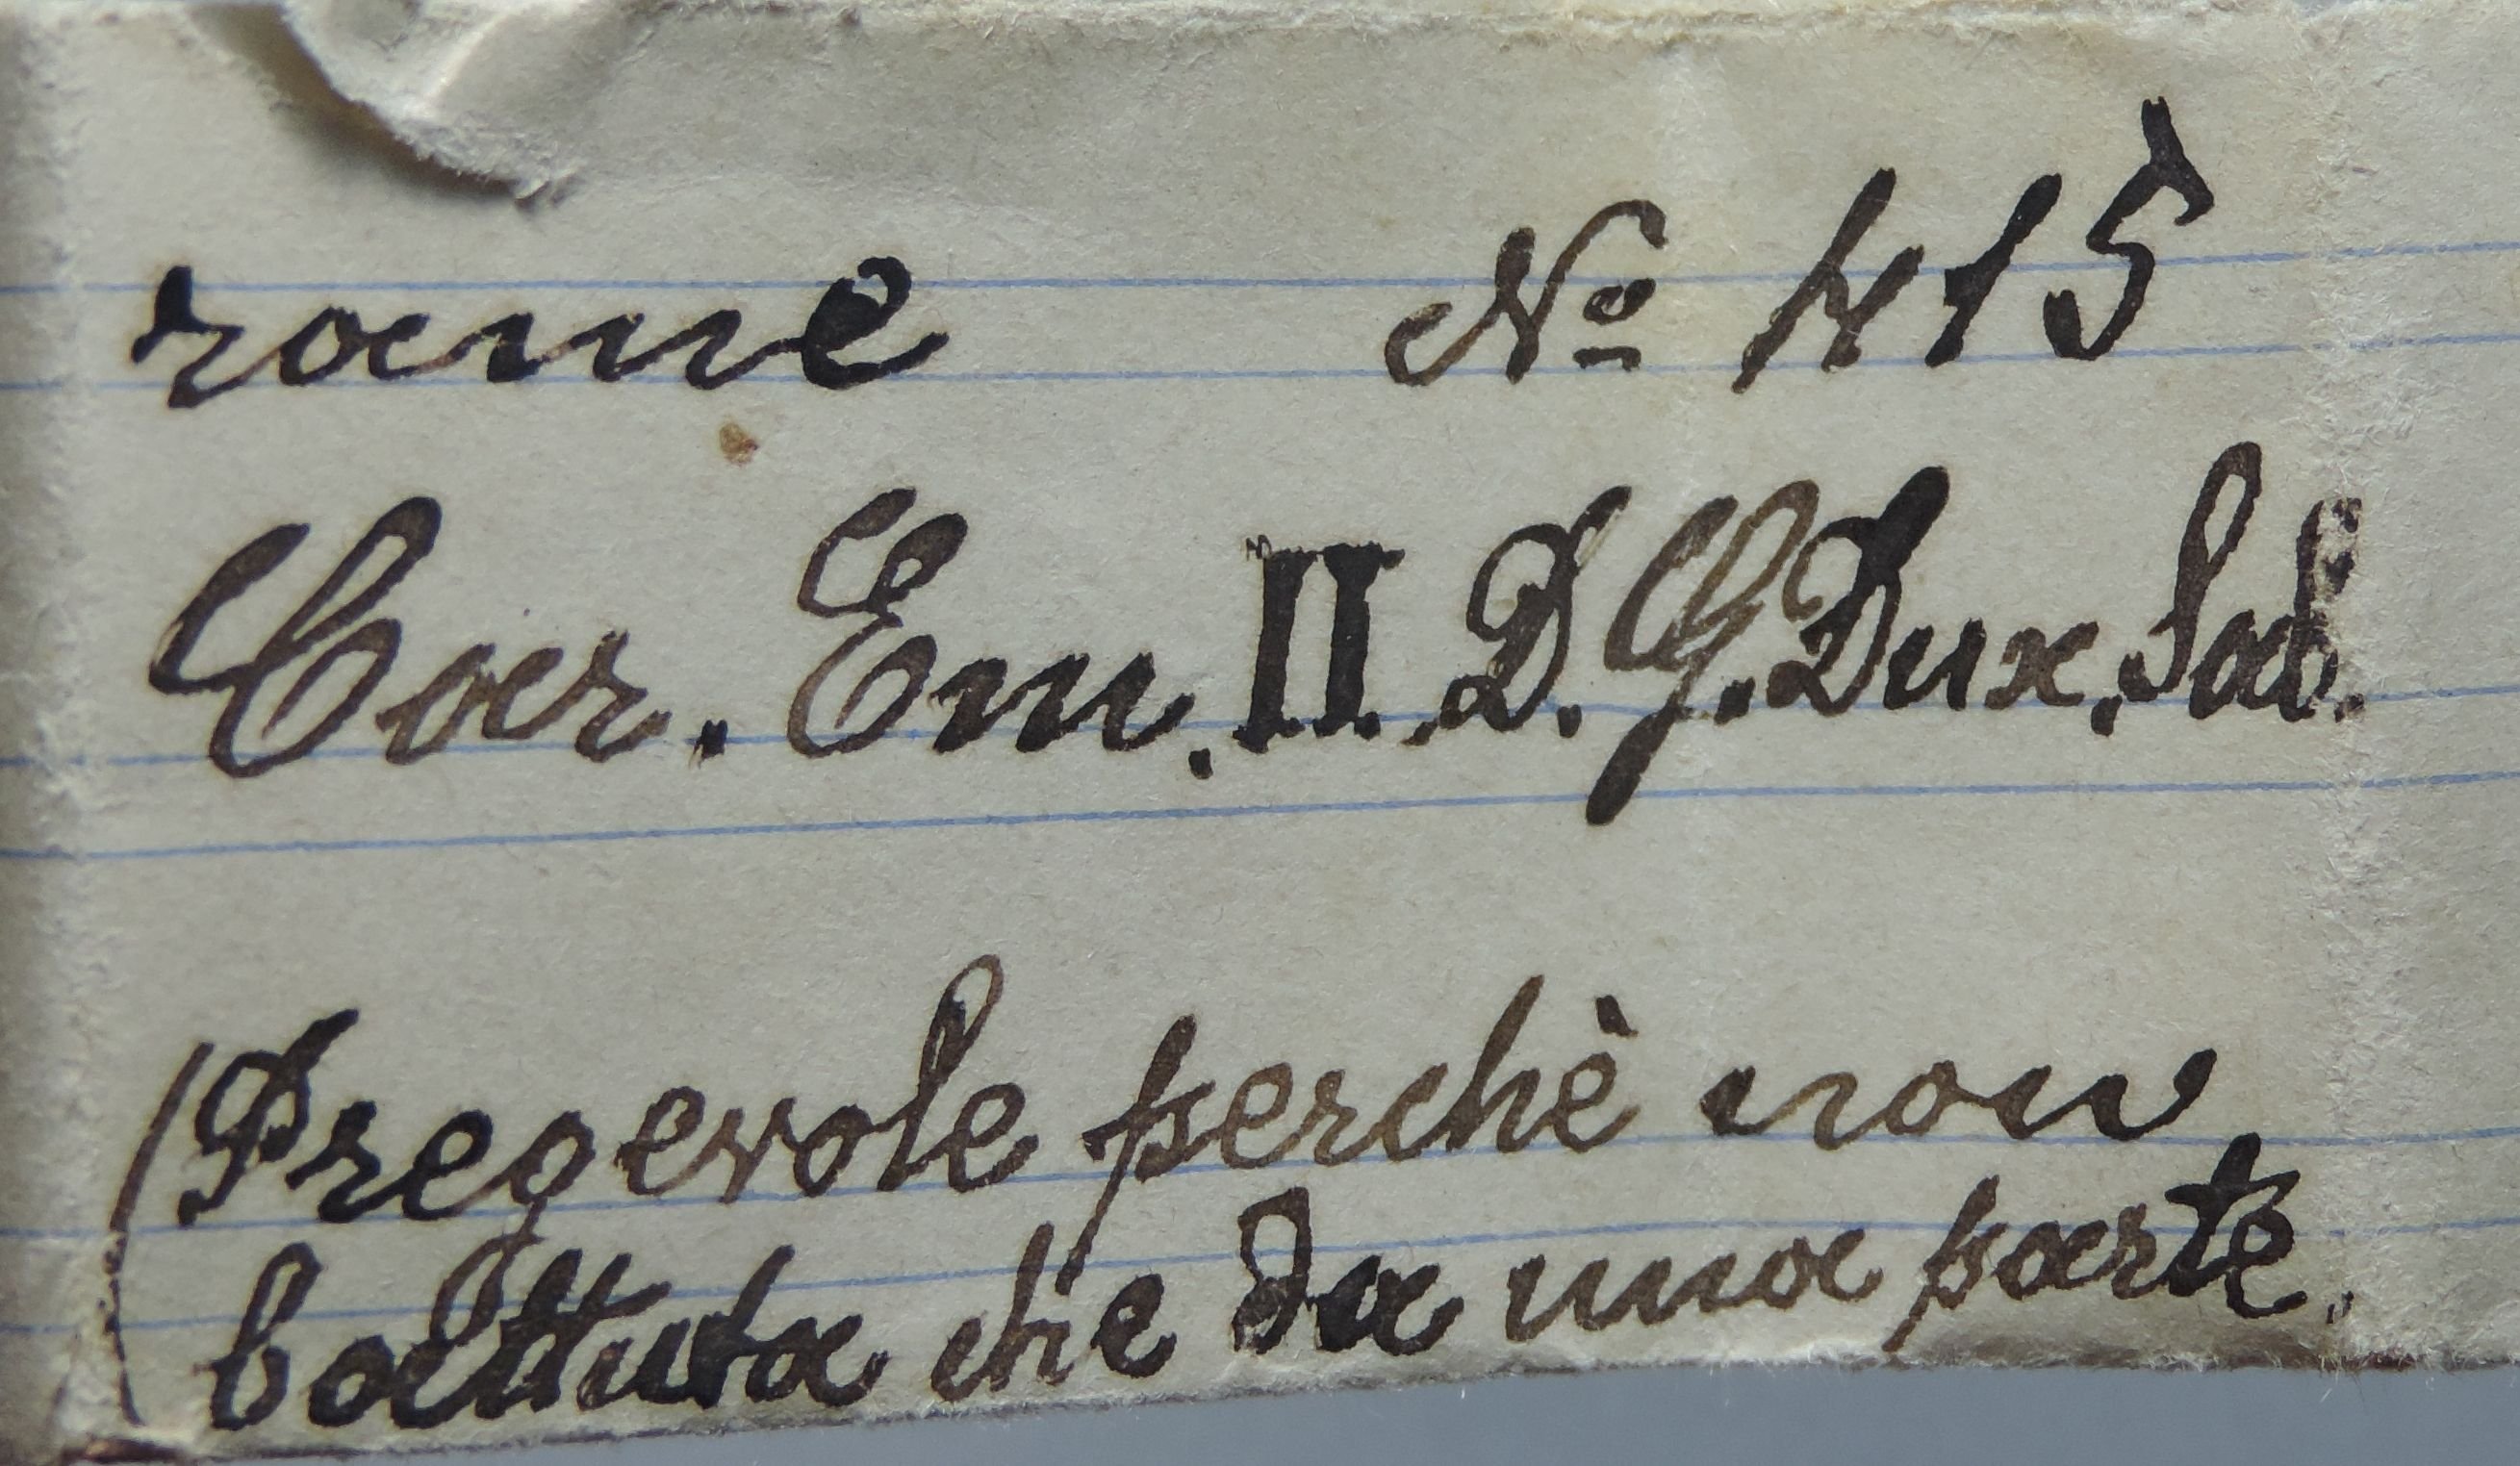 rame Nº 415
Car. Em. II. D. G. Dux, Sab.
(Pregevole perchè non
battuta che da una parte.